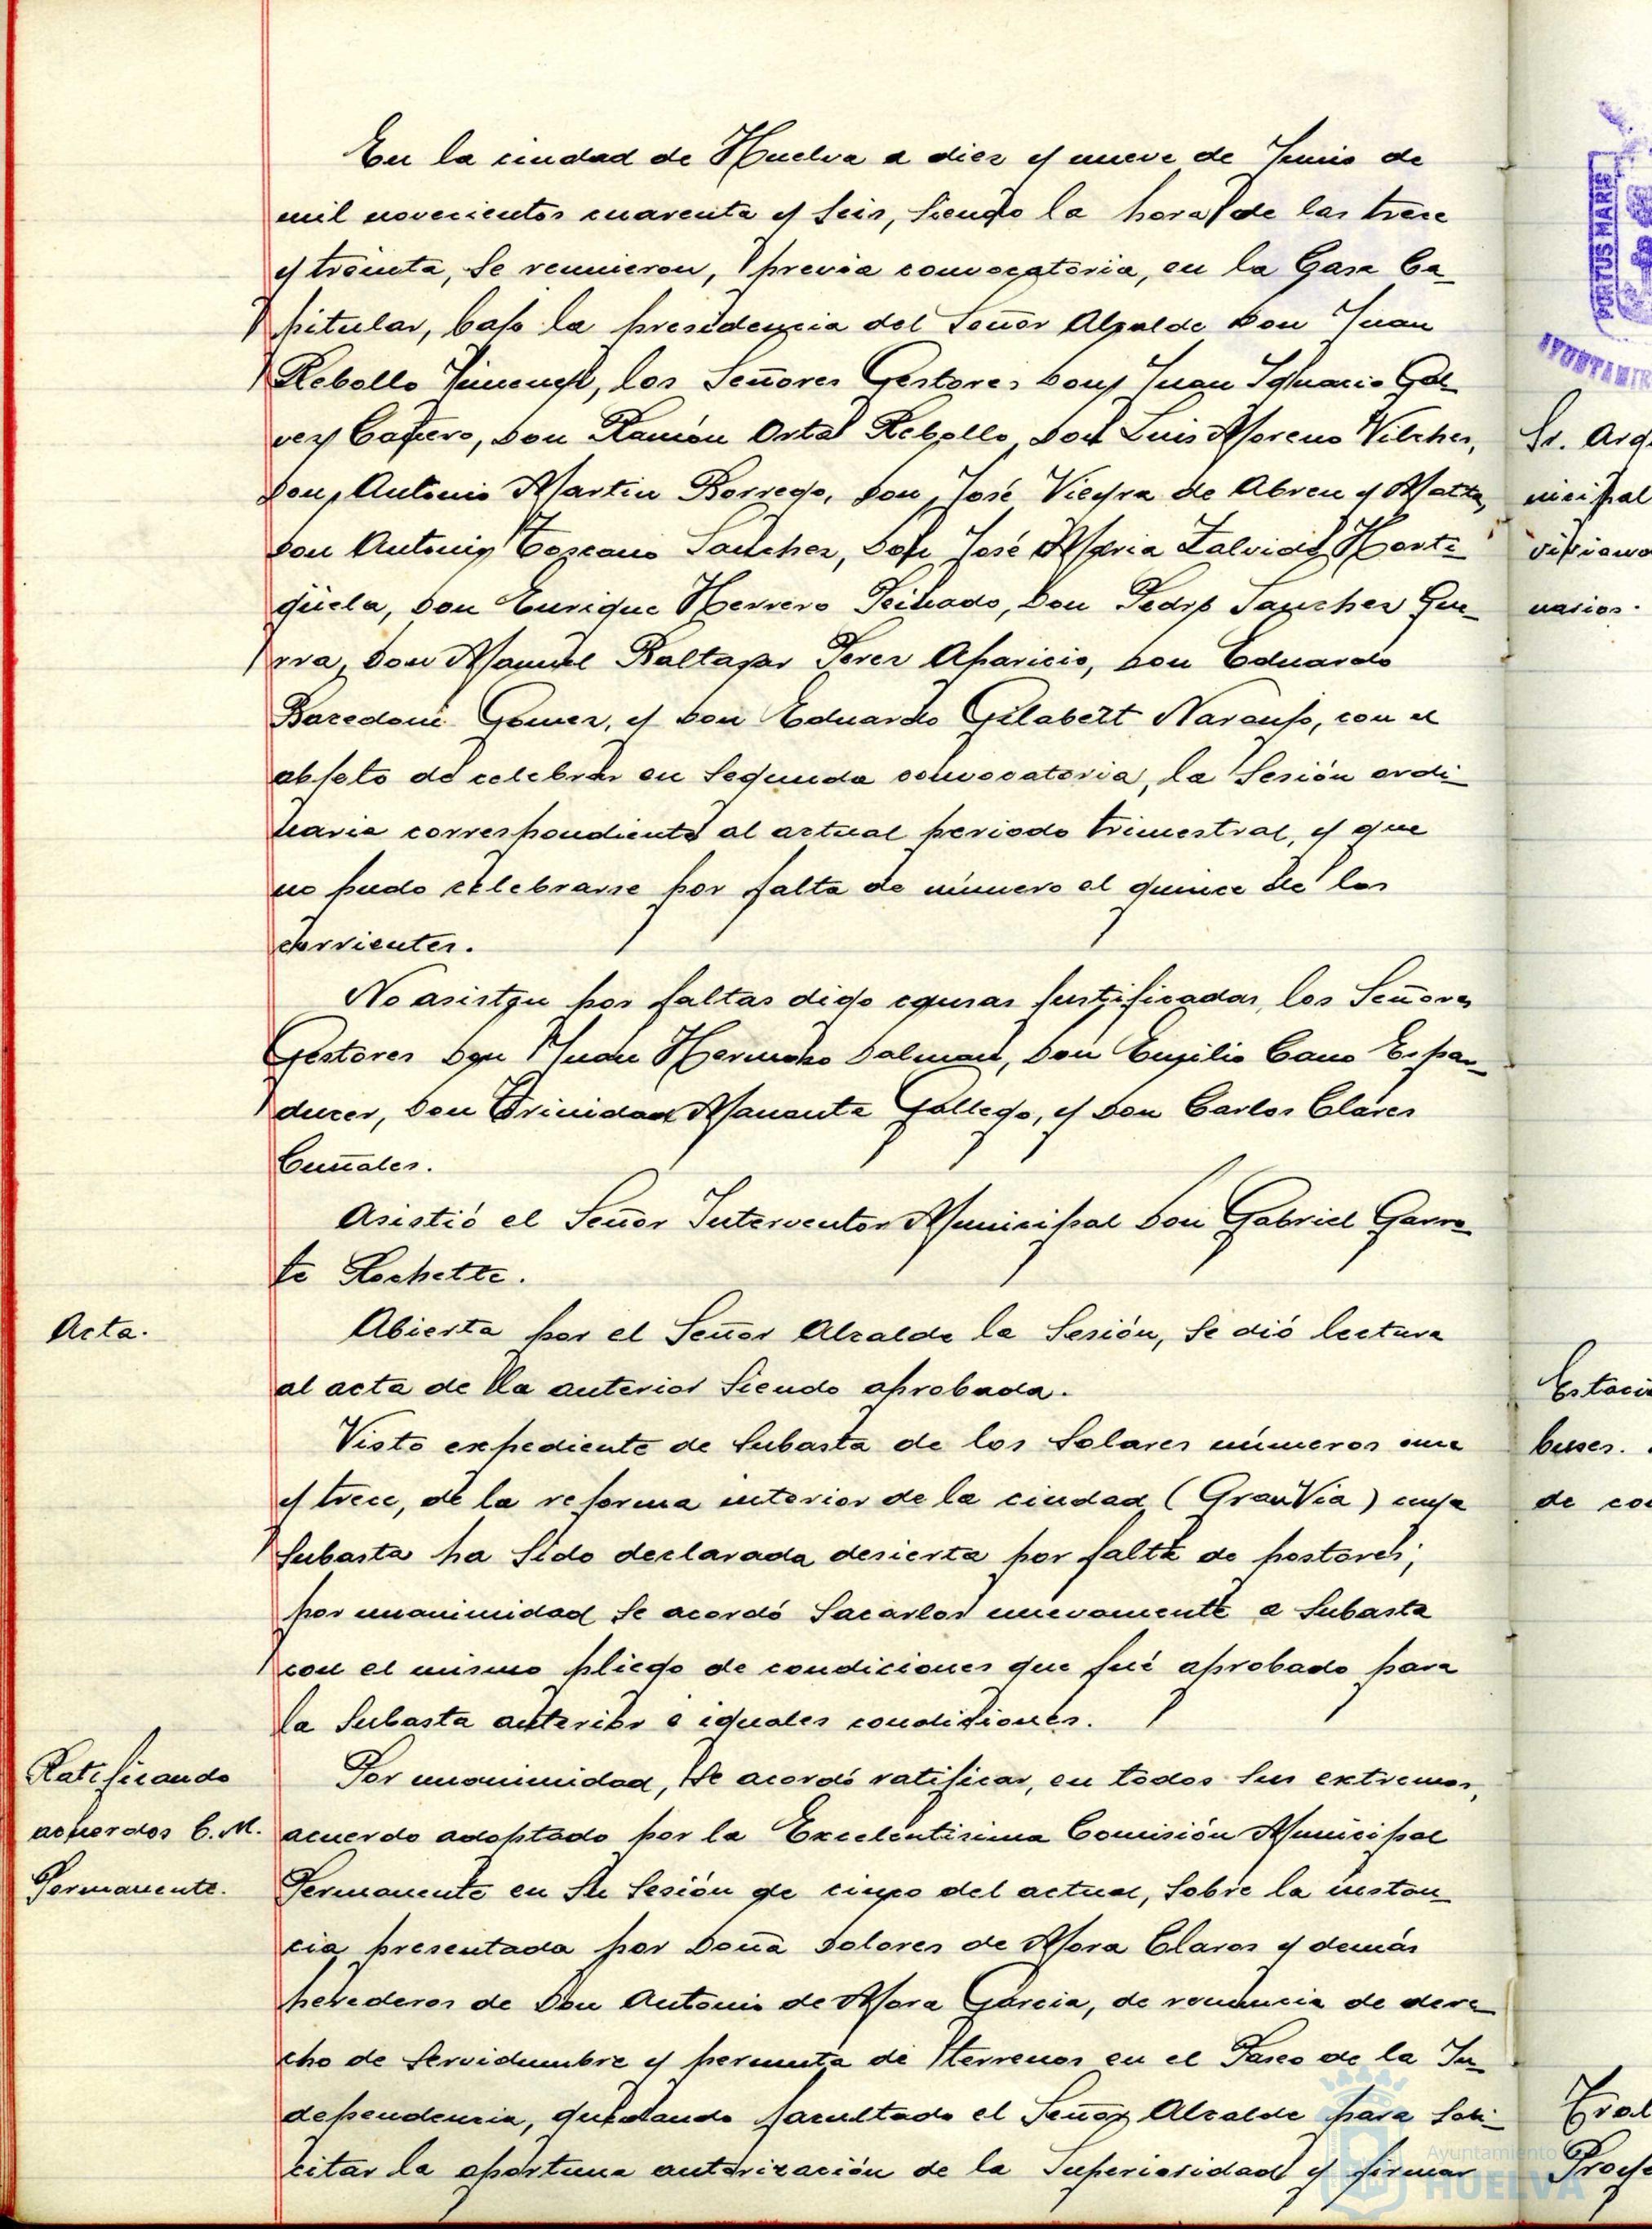 En la ciudad de Huelva a diez y nueve de Junio de
mil novecientos cuarenta y seis, siendo la hora de las trece
y treinta, se reunieron, previa convocatoria, en la Casa Ca-
pitular, bajo la presidencia del Señor Alcalde Don Juan
Rebollo Jimenez, los Señores Gestores Don Juan Ignacio Gal-
vez Cañero, Don Ramón Ortal Rebollo, Don Luis Moreno Vilches,
Don Antonio Martin Borrego, Don José Vieyra de Abreu y Matta,
Don Antonio Toscano Sanchez, Don José Maria Zalvide Horti-
güela, Don Enrique Herrero, Don Pedro Sanchez Gue-
rra, Don Manuel Baltasar Perez Aparicio, Don Eduardo
Bacedoni Gomez, y Don Eduardo Gilabert Naranjo, con el
objeto de celebrar en segunda convocatoria, la sesión ordi-
naria correspondiente al actual periodo trimestral, y que
no pudo celebrarse por falta de número el quince de los
corrientes.
No asisten por faltas digo causas justificadas, los Señores
Gestores Don Juan Hermoso Dalmau, Don Emilio Cano Espan-
ducer, Don Trinidad Manante Gallego, y Don Carlos Clares
Cuñales.
Asistió el Señor Interventor Municipal Don Gabriel Garro-
te Rochette.
Acta.
Abierta por el Señor Alcalde la sesión, se dió lectura
al acta de la anterior siendo aprobada.
Visto expediente de subasta de los solares números once
y trece, de la reforma interior de la ciudad (Gran Via) cuya
subasta ha sido declarada desierta por falta de postores;
por unanimidad se acordó sacarlos nuevamente a subasta
con el mismo pliego de condiciones que fué aprobado para
la subasta anterior e iguales condiciones.
Ratificando
acuerdos C. M.
Permanente.
Por unanimidad, se acordó ratificar, en todos sus extremos,
acuerdo adoptado por la Excelentisima Comisión Municipal
Permanente en su sesión de cinco del actual, sobre la instan-
cia presentada por Doña Dolores de Mora Claros y demás
herederos de Don Antonio de Mora Garcia, de renuncia de dere-
cho de servidumbre y permuta de terrenos en el Paseo de la In-
dependencia, quedando facultado el Señor Alcalde para soli-
citar la oportuna autorización de la Superioridad y firmar
PORTUS MARIS
AYUNTAMIE
Sr. Arq
nicipal
narios.
Estaci
buses.
de co
Ayuntamiento
HUELVA